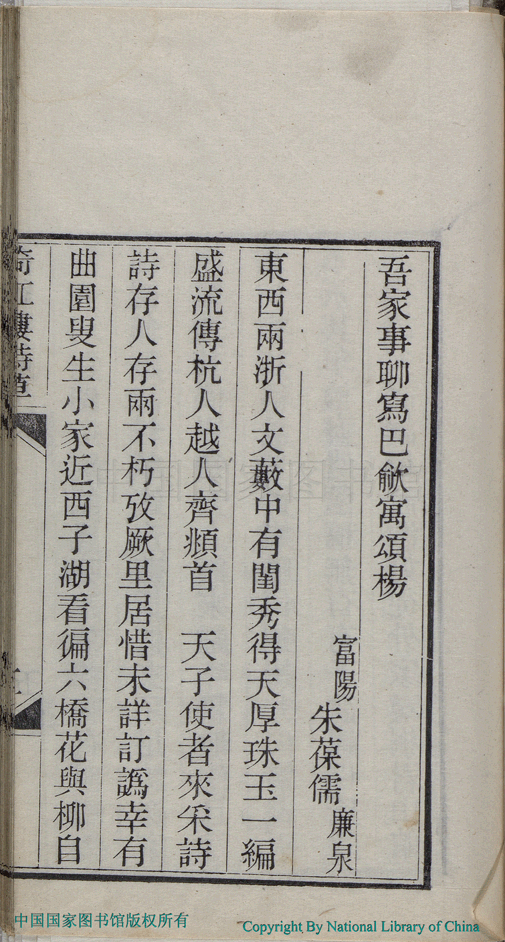 吾家事聊寫巴歈寓頌楊
富陽朱葆儒廉泉
東西兩浙人文藪中有閨秀得天厚珠玉一編
盛流傳杭人越人齊頫首　天子使者來采詩
詩存人存兩不朽攷厥里居惜未詳訂譌幸有
曲園叟生小家近西子湖看徧六橋花與柳自
綺江樓詩草
中国国家图书馆版权所有
Copyright By National Library of China